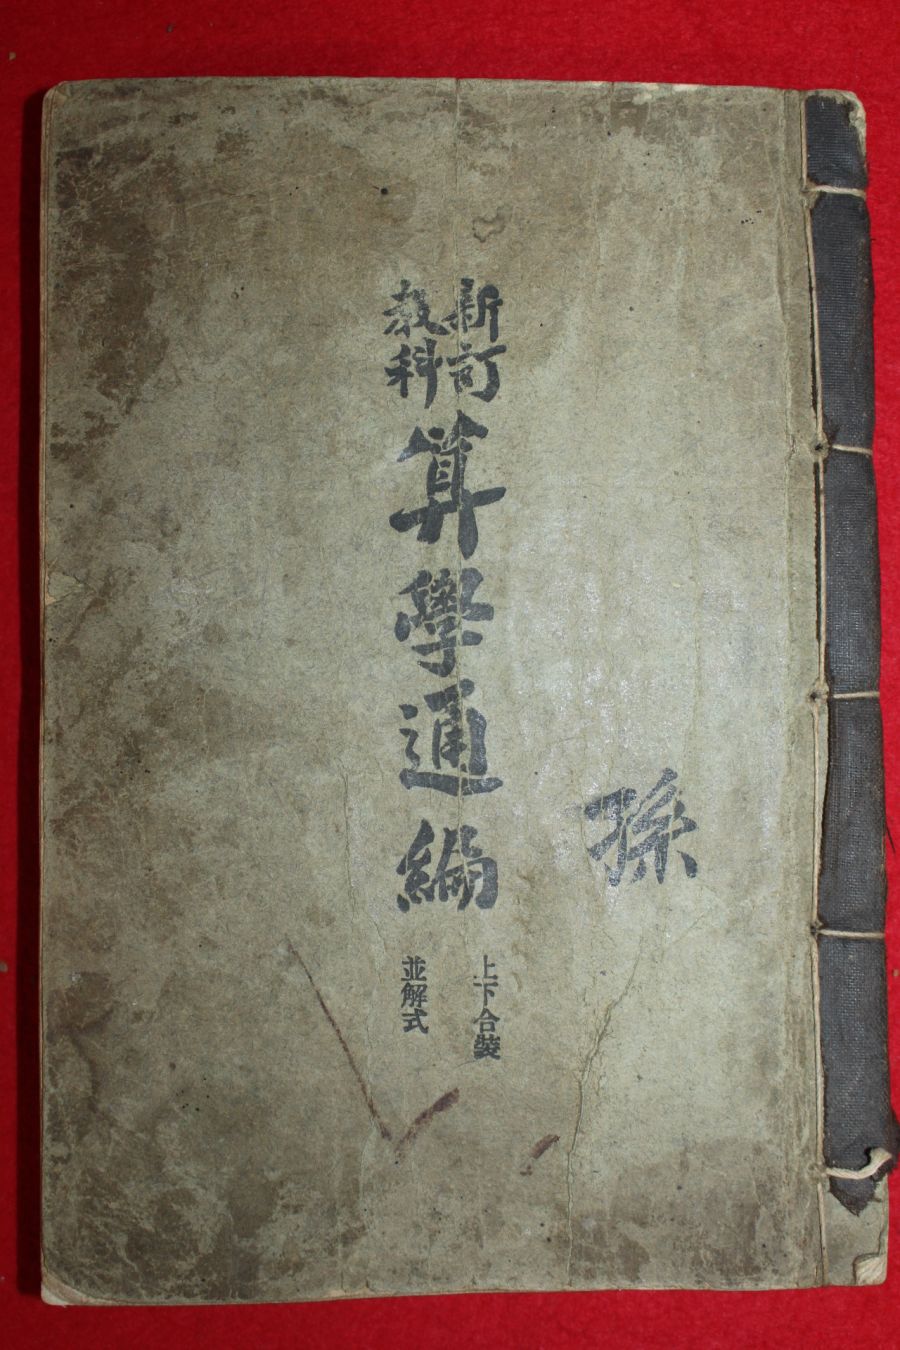 孫
新訂
敎科
算學通編
上下合裝
並解式